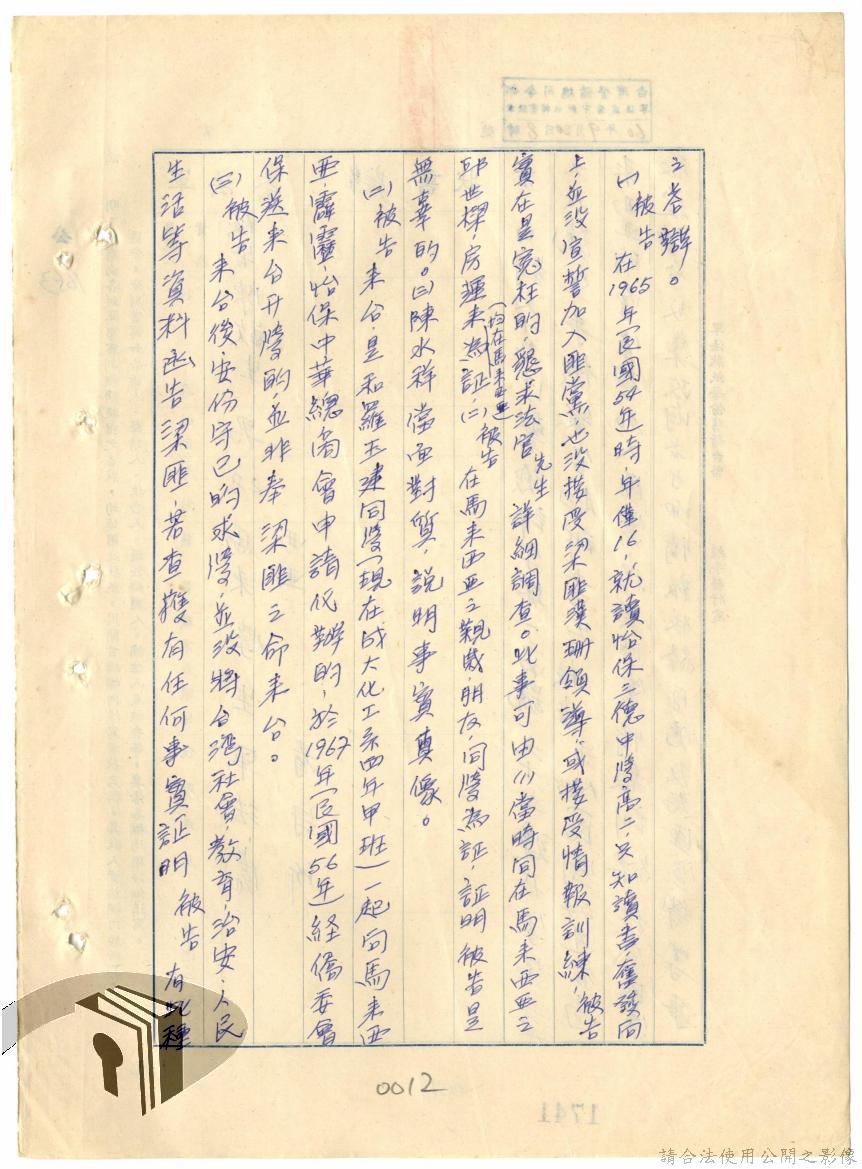 之答辯。
(一)被告在1965年(民國54年時,年僅16,就讀怡保三德中學高二,只知讀書,奮發向
上,並没宣誓加入匪黨,也没接受梁匪漢珊領導,或接受情報訓練,被告
實在是冤枉的,懇求法官先生詳細調查。此事可由(1)當時同在馬来西亞之
邱世樑,房運来為証,(均在馬来西亜)(二)被告在馬来西亞之親戚,朋友,同學為証,証明被告是
無辜的。(三)陳水祥當面對質,説明事實真像。
(二)被告来台,是和羅玉建同學(現在成大化工系四年甲班)一起向馬来西
亜,霹靂,怡保中華總商會申請代辦的,於1967年(民國56年)経僑委會
保送来台升學的,並非奉梁匪之命来台。
(三)被告来台後,安份守己的求學,並没將台湾社會,教育,治安,人民
生活等資料函告梁匪,若查獲有任何事實証明被告有此種
0012
17741
60年9月20日8時
請合法使用公開之影像